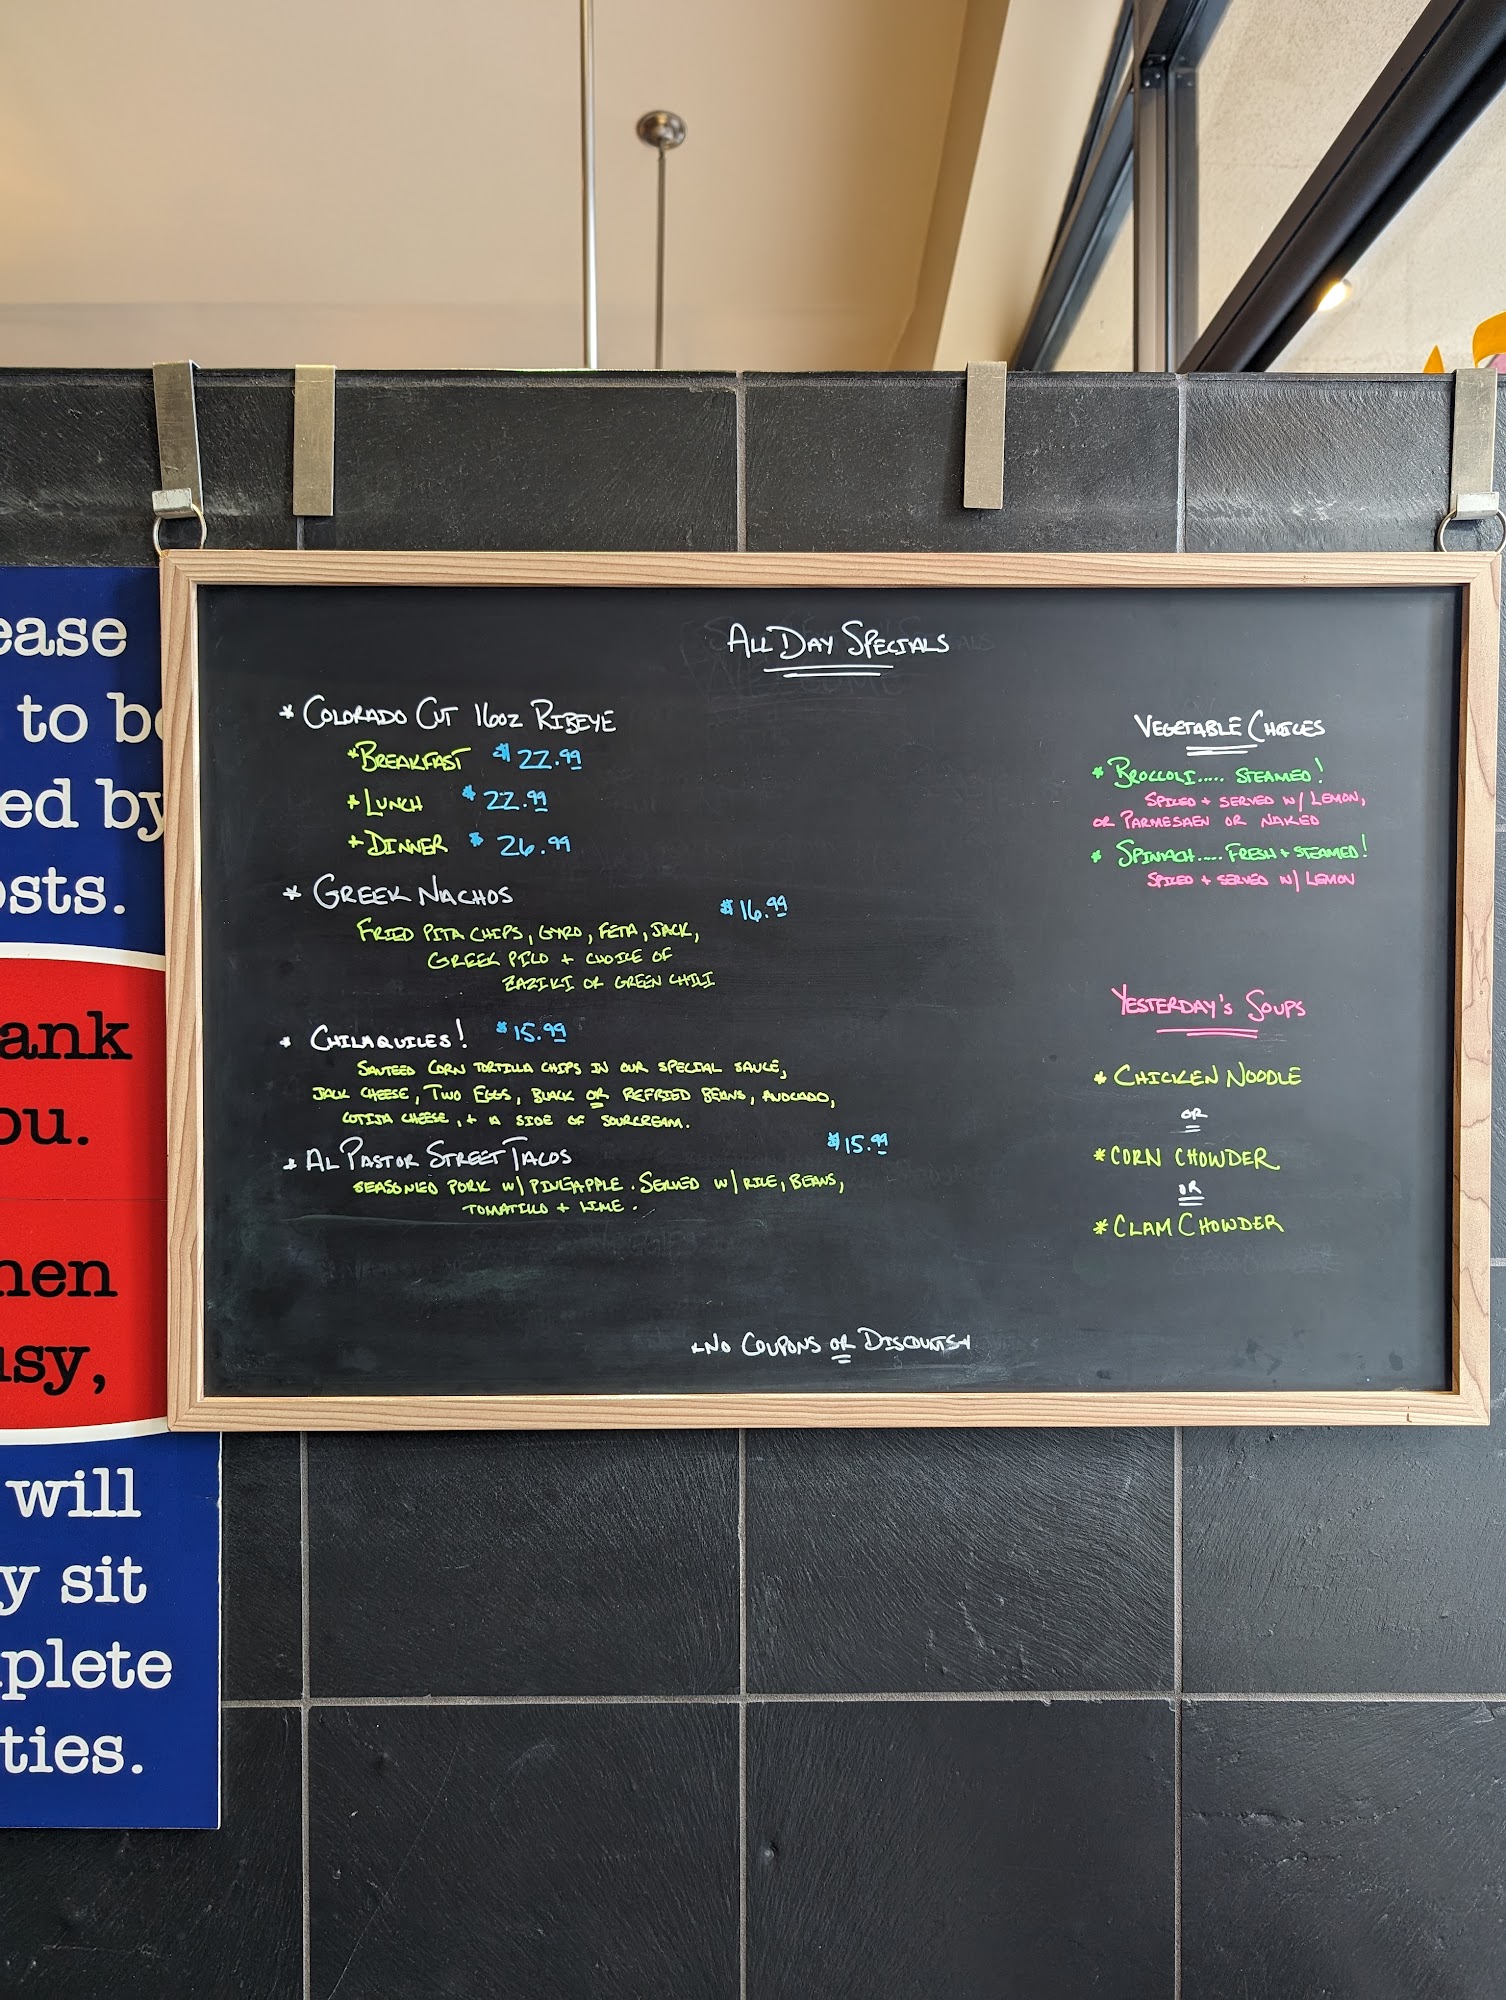 ease
to be
ed by
osts.
ank
ou.
hen
usy,
will
y sit
mplete
ties.
All Day Specials
* Colorado Cut 16oz Ribeye
* Breakfast $22.99
* Lunch $22.99
* Dinner $26.99
* Greek Nachos $16.99
Fried pita chips, gyro, feta, jack,
Greek pico + choice of
zaziki or green chili
* Chilaquiles! $15.99
Sauteed corn tortilla chips in our special sauce,
jack cheese, two eggs, black or refried beans, avocado,
cotija cheese, + a side of sourcream.
* Al Pastor Street Tacos $15.99
Seasoned pork w/ pineapple. Served w/ rice, beans,
tomatillo + lime.
Vegetable Choices
* Broccoli..... steamed!
Spiced + served w/ lemon,
or Parmesaen or naked
* Spinach.... Fresh + steamed!
Spiced + served w/ lemon
Yesterday's Soups
* Chicken Noodle
or
* Corn Chowder
or
* Clam Chowder
*No Coupons or Discounts*